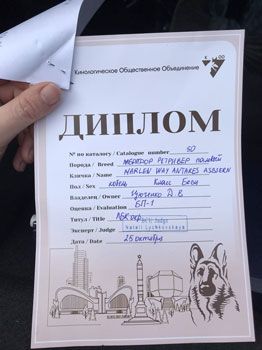 К ОО
Кинологическое Общественное Объединение
ДИПЛОМ
№ по каталогу / Catalogue number 50
Порода / Breed ретривер палевый
Кличка / Name MARLEN WAY ANTARES ASBJERN
Пол / Sex кобель Класс беби
Владелец / Owner Д. В
Оценка / Evaluation БП-1
Титул / Title
Эксперт / Judge
Дата / Date 25 октября